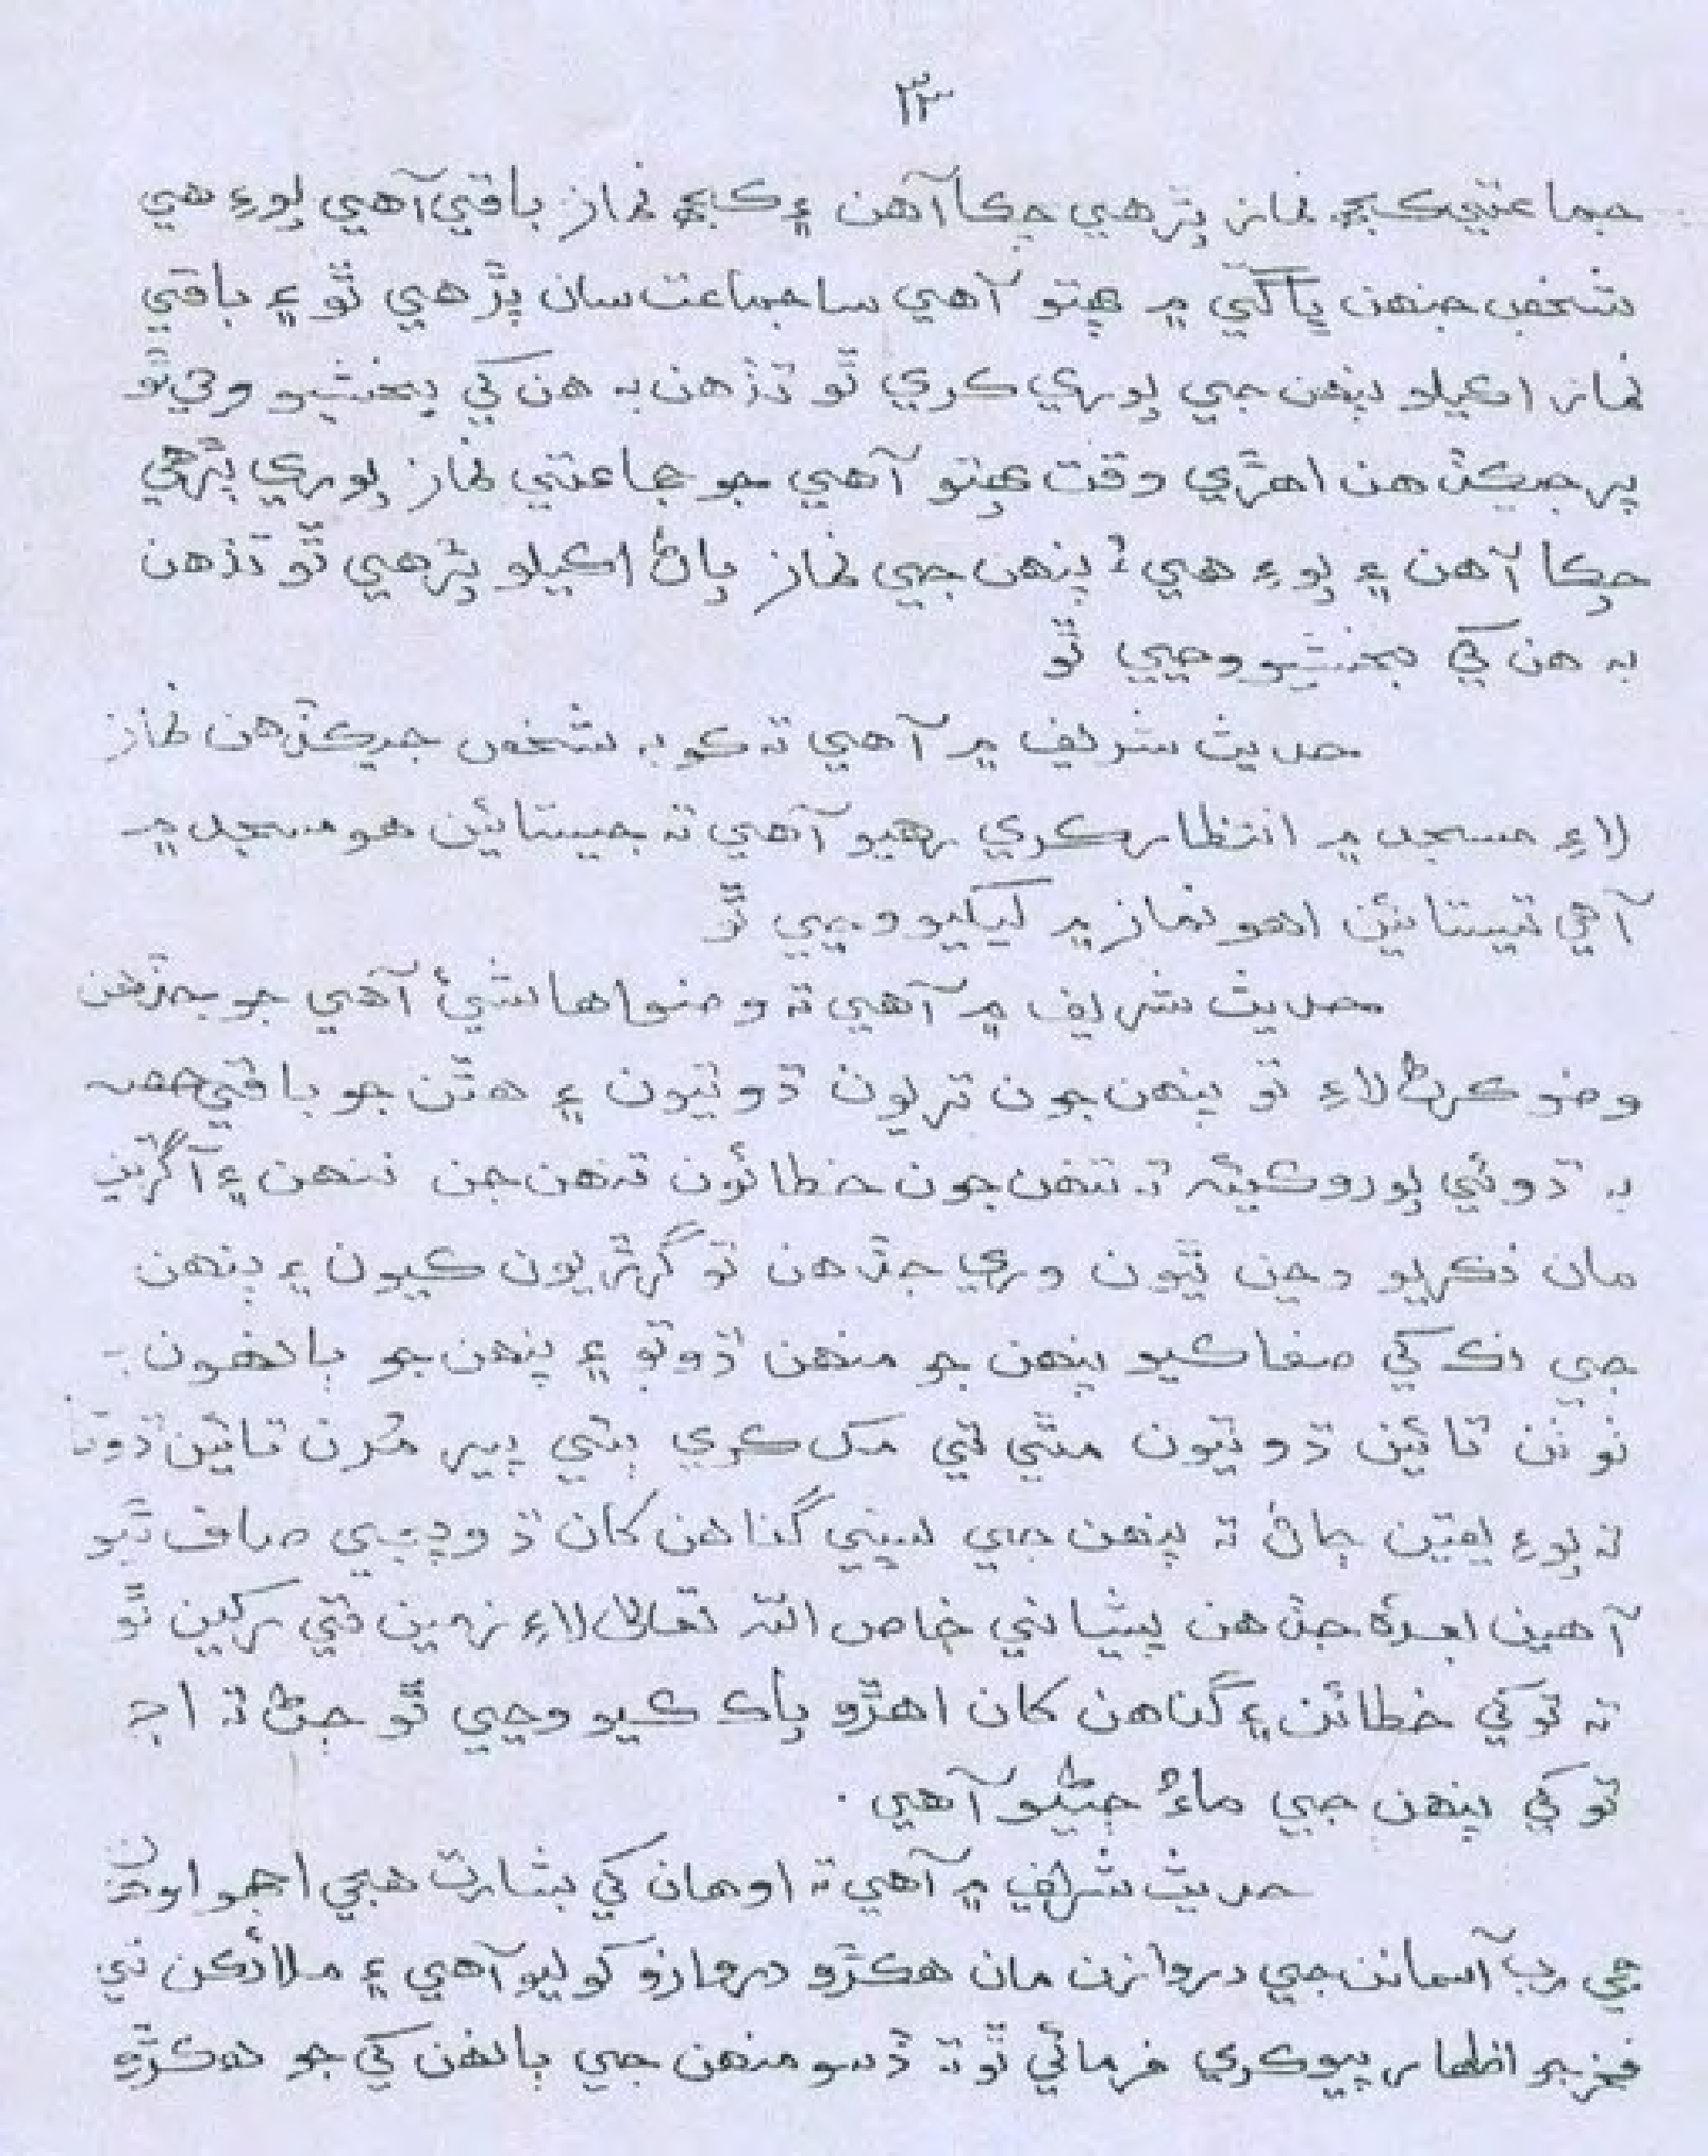 ٣٣
جماعتي ڪجهه نماز پڙهي چڪا آهن ۽ ڪجهه نماز باقي آهي پوءِ هي
شخص جنهن ڀاڱي ۾ پهتو آهي سا جماعت سان پڙهي ٿو ۽ باقي
نماز اڪيلو پنهن جي پوري ڪري ٿو تڏهن به هن کي بخشيو وڃي ٿو
پر جيڪڏهن اهڙي وقت پهتو آهي جو جماعتي نماز پوري پڙهي
چڪا آهن ۽ پوءِ هي پنهن جي نماز پاڻ اڪيلو پڙهي ٿو تڏهن
به هن کي بخشيو وڃي ٿو
حديث شريف ۾ آهي ته ڪو به شخص جيڪڏهن نماز
لاءِ مسجد ۾ انتظار ڪري رهيو آهي ته جيستائين هو مسجد ۾
آهي تيستائين اهو نماز ۾ ليکيو وڃي ٿو
حديث شريف ۾ آهي ته وضو اها شيءِ آهي جو جڏهن
وضو ڪرڻ لاءِ تو پنهن جون تريون ڌوتيون ۽ هٿن جو باقي حصه
به ڌوئي پورو ڪيئه ته تنهن جون خطائون تنهن جن ننهن ۽ آڱرين
مان نڪريو وڃن ٿيون وري جڏهن تو گرڙيون ڪيون ۽ پنهن
جي نڪ کي صفا ڪيو پنهن جو منهن ڌوتو ۽ پنهن جو ٻانهون
ٺوٺن تائين ڌوتيون مٿي تي مک ڪري ٻئي پير مُرن تائين ڌوتا
ته پوءِ يقين ڄاڻ ته پنهن جي سڀني گناهن کان ڌوپجي صاف ٿيو
آهين ابعدهٔ جڏهن پيشاني خاص الله تعاليٰ لاءِ زمين تي رکين ٿو
ته توکي خطائن ۽ گناهن کان اهڙو پاڪ ڪيو وڃي ٿو ڄڻ ته اڄ
توکي پنهن جي ماءُ ڄڻيو آهي.
حديث شريف ۾ آهي ته اوهان کي بشارت هجي اجهو اوهان
جي رب آسمانن جي دروازن مان هڪڙو دروازو کوليو آهي ۽ ملائڪن تي
فخر جو اظهار پيو ڪري فرمائي ٿو ته ڏسو منهن جي ٻانهن کي جو هڪڙو